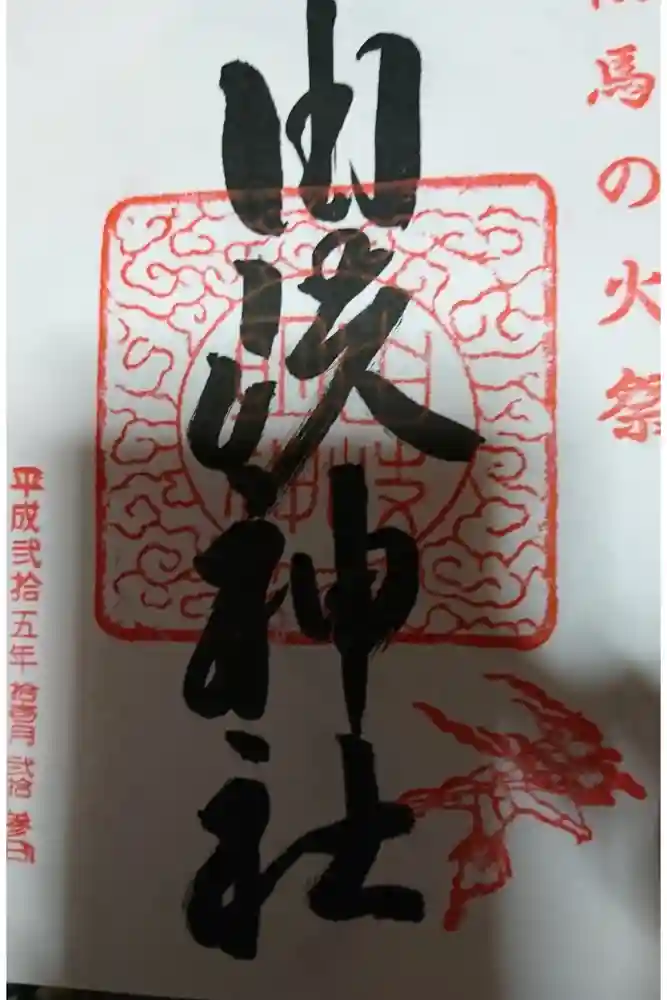 馬の火祭
由岐神社
平成弐拾五年拾壱月弐拾参日